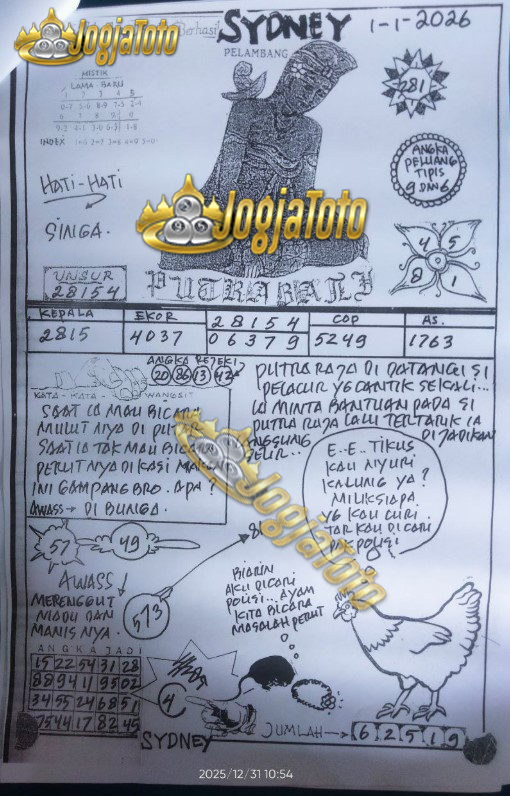 JogjaToto
Berhasil
SYDNEY
1-1-2026
PELAMBANG
MISTIK
LAMA - BARU
1 2 3 4 5
6 7 8 9 0
INDEX
281
ANGKA
PELUANG
TIPIS
9 DAN 6
HATI-HATI
SINGA.
JogjaToto
4 5
8 1
UNSUR
28154
PUTRA BALI
KEPALA
EKOR
28154
COP
AS.
2815
4037
06379
5249
1763
ANGKA REJEKI
20 86 13 42
KATA - KATA WANGSIT
SAAT IA MAU BICARA
MULUT NYA DI PUTAR
SAAT IA TAK MAU BICARA
PERUT NYA DI KASI MAKAN
INI GAMPANG BRO. APA ?
AWASS → DI BUNGA.
PUTRA RAJA DI DATANGI SI
PELACUR YG CANTIK SEKALI...
IA MINTA BANTUAN PADA SI
PUTRA RAJA LALU TERTARIK IA
DI JADIKAN
JogjaToto
E..E..TIKUS
KAU NYURI
KALUNG YA ?
MILIK SIAPA
YG KAU CURI.
TAR KAU DICARI
PAK POLISI
57
49
8
AWASS
MERENGGUT
MADU DAN
MANIS NYA.
513
BIARIN
AKU DICARI
POLISI... AYAM
KITA BICARA
MASALAH PERUT
ANGKA JADI
15 22 54 31 28
88 94 11 95 02
34 55 24 68 51
75 44 17 82 45
4
SYDNEY
JUMLAH → 6 2 5 1 9
2025/12/31 10:54